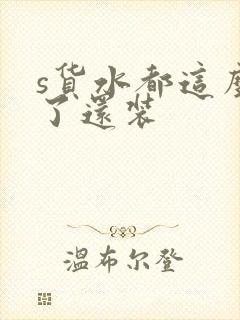 s货水都這麼
了還装
温布尔登